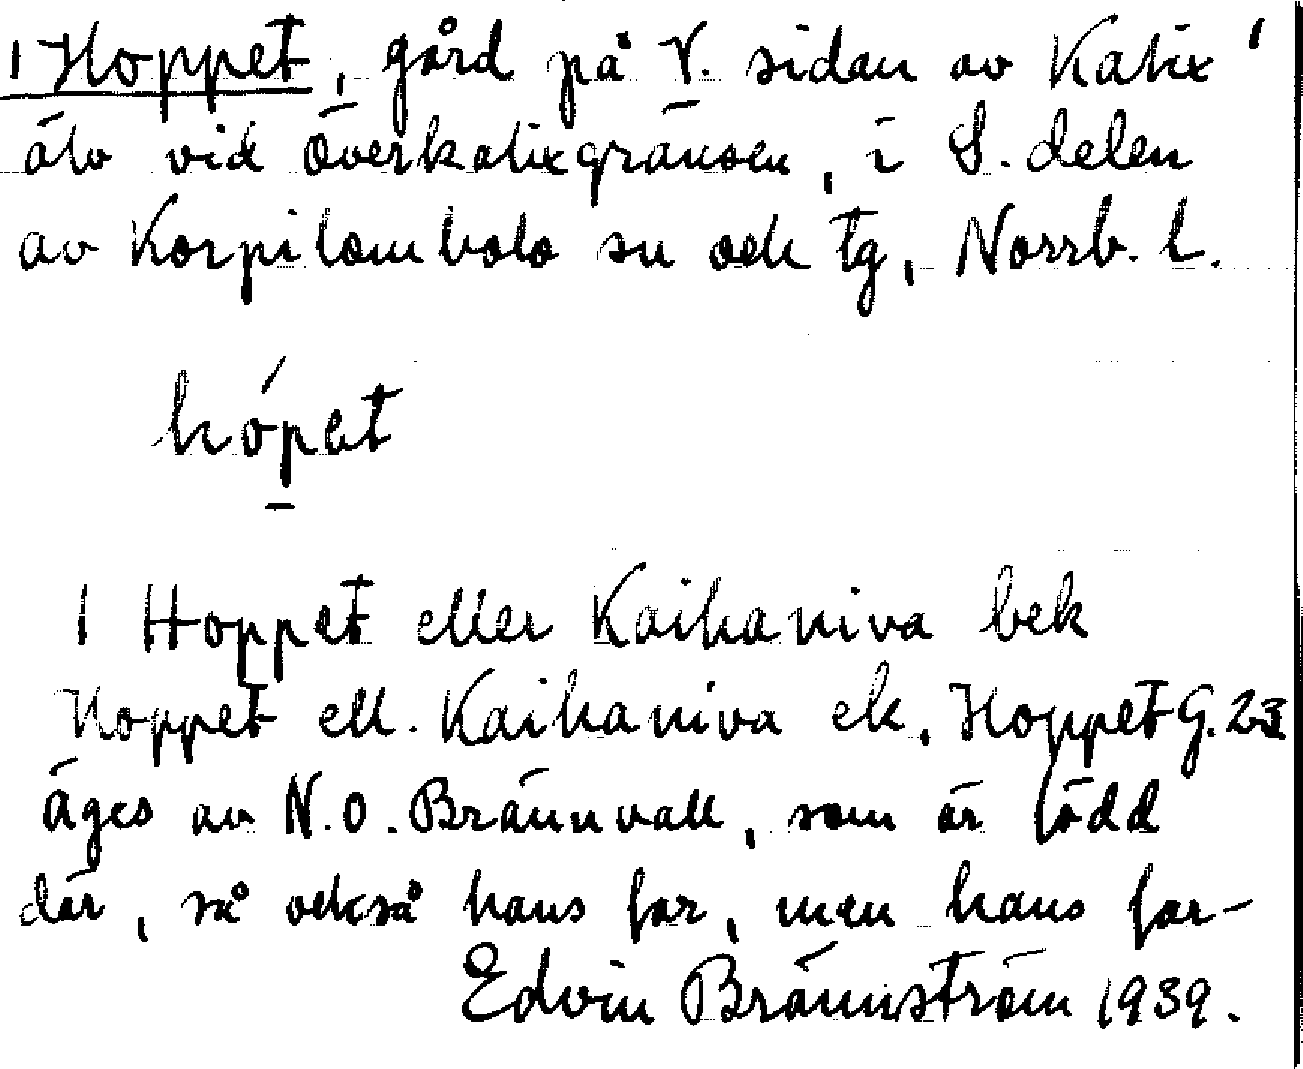 1 Hoppet, gård på V. sidan av Kalix
älv vid Överkalixgränsen, i S. delen
av Korpilombolo sn och tg, Norrb. l.
hópet
1 Hoppet eller Kaihaniva bek
Hoppet ell. Kaihaniva ek. Hoppet G. 23
äges av N.O. Brännvall, som är född
där, så också hans far, men hans far-
Edvin Brännström 1939.